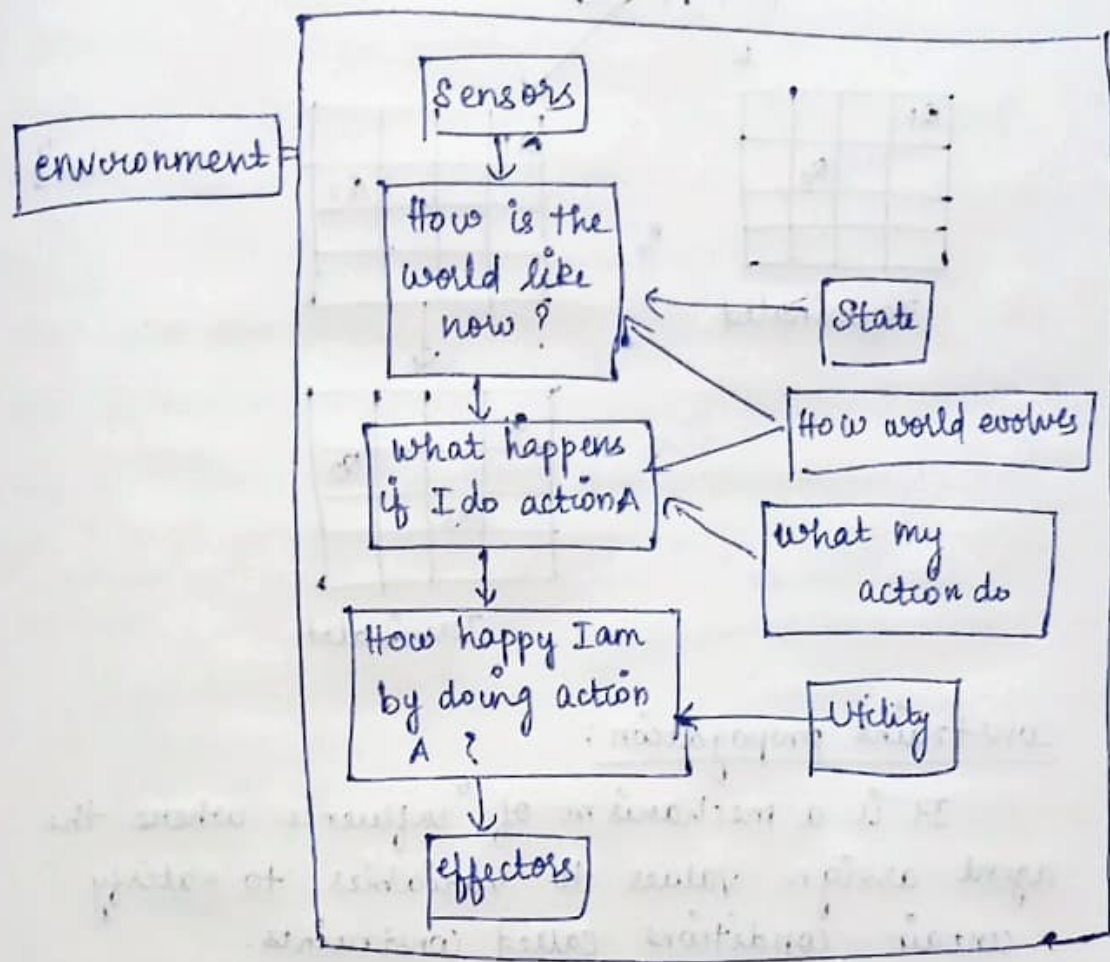 Sensors
environment
How is the
world like
now ?
State
How world evolves
what happens
if I do action A
what my
action do
How happy I am
by doing action
A ?
Utility
effectors